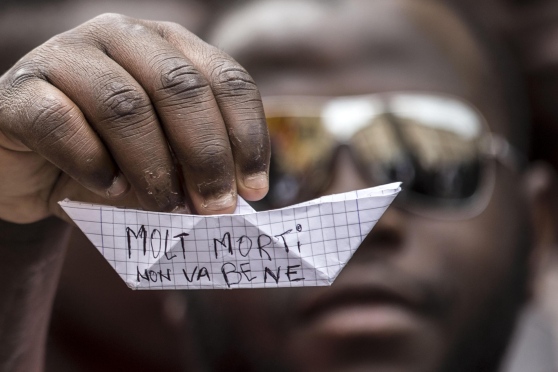 MOLT MORTi
NON VA BENE